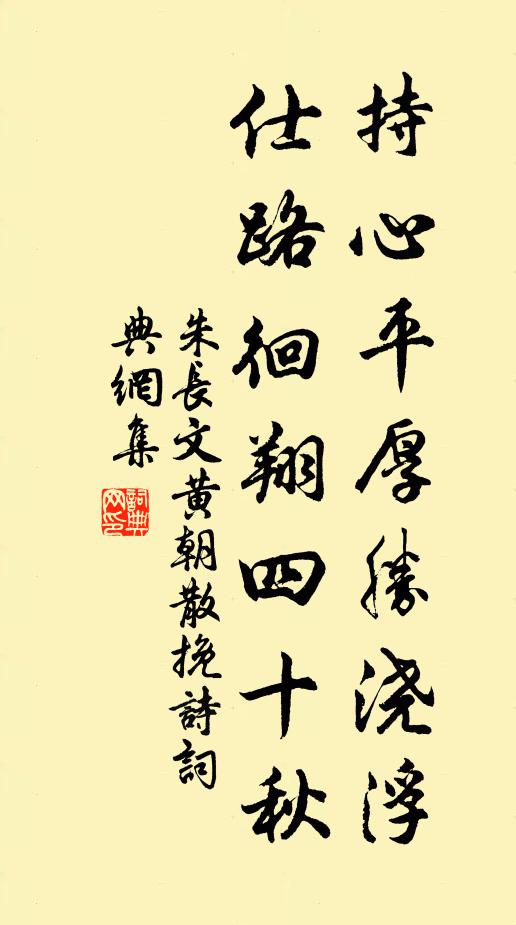 持心平厚勝浇浮
仕路徊翔四十秋
朱長文黄朝散挽詩詞
典網集
詞典网印